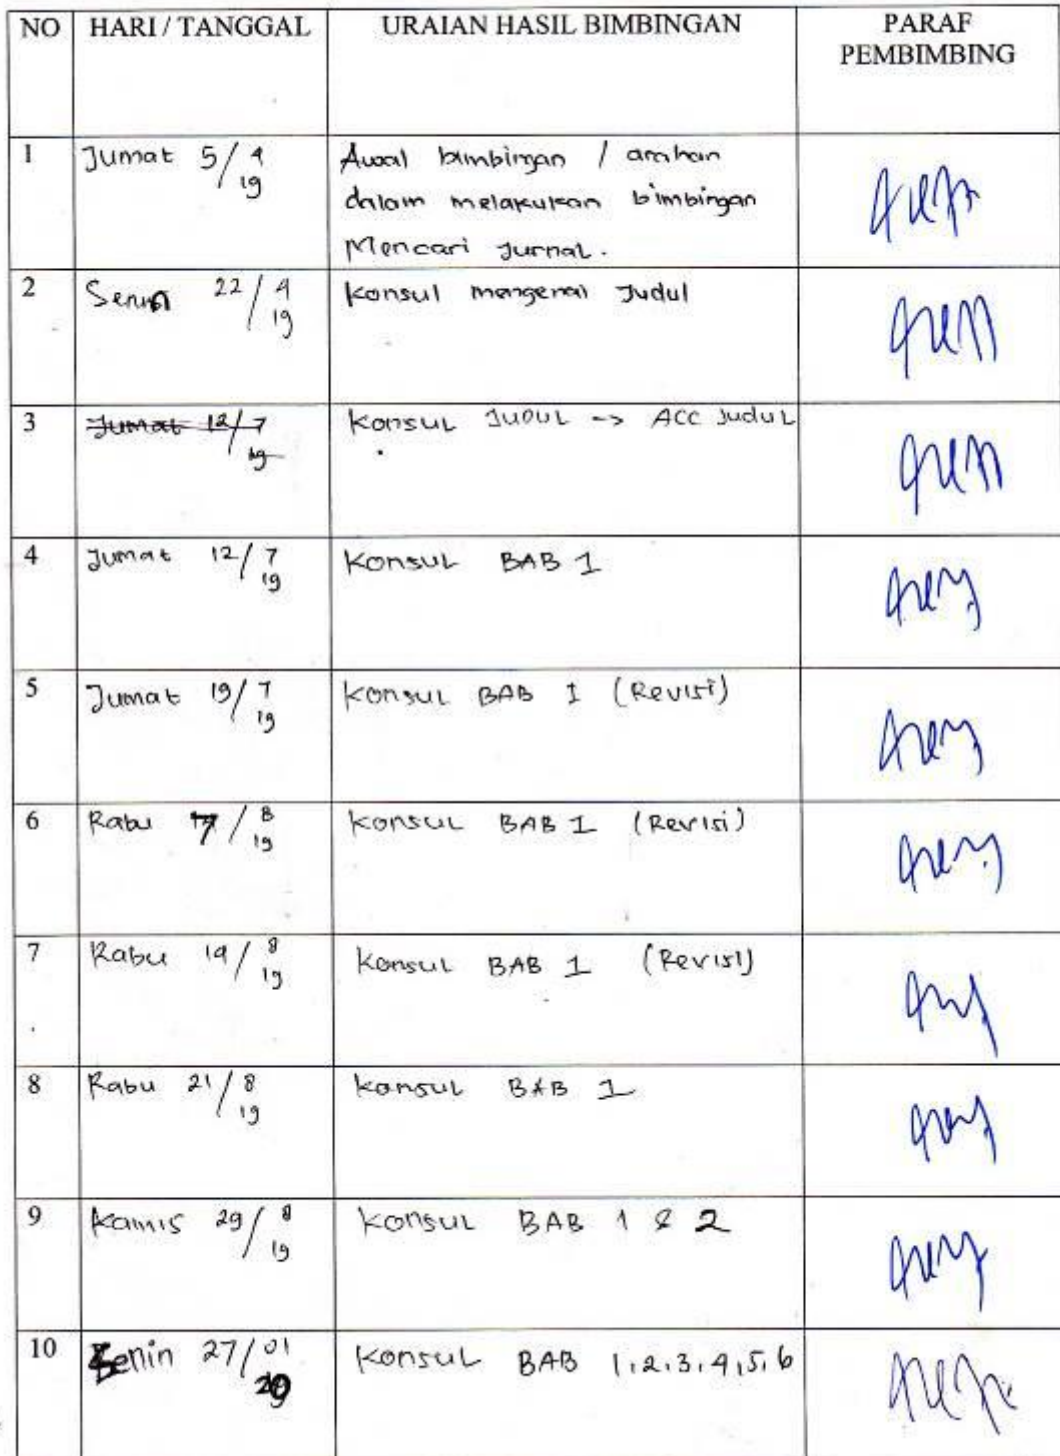 NO HARI / TANGGAL URAIAN HASIL BIMBINGAN PARAF
PEMBIMBING
1 Jumat 5/4 Awal bimbingan / arahan
19 dalam melakukan bimbingan
Mencari Jurnal.
2 Senin 22/4 Konsul mengenai Judul
19
3 Jumat 12/7 Konsul JUDUL -> ACC Judul
19
4 Jumat 12/7 Konsul BAB 1
19
5 Jumat 19/7 Konsul BAB I (Revisi)
19
6 Rabu 7/8 Konsul BAB I (Revisi)
19
7 Rabu 14/8 Konsul BAB 1 (Revisi)
19
8 Rabu 21/8 Konsul BAB 1
19
9 Kamis 29/8 Konsul BAB 1 & 2
19
10 Senin 27/01 Konsul BAB 1,2,3,4,5,6